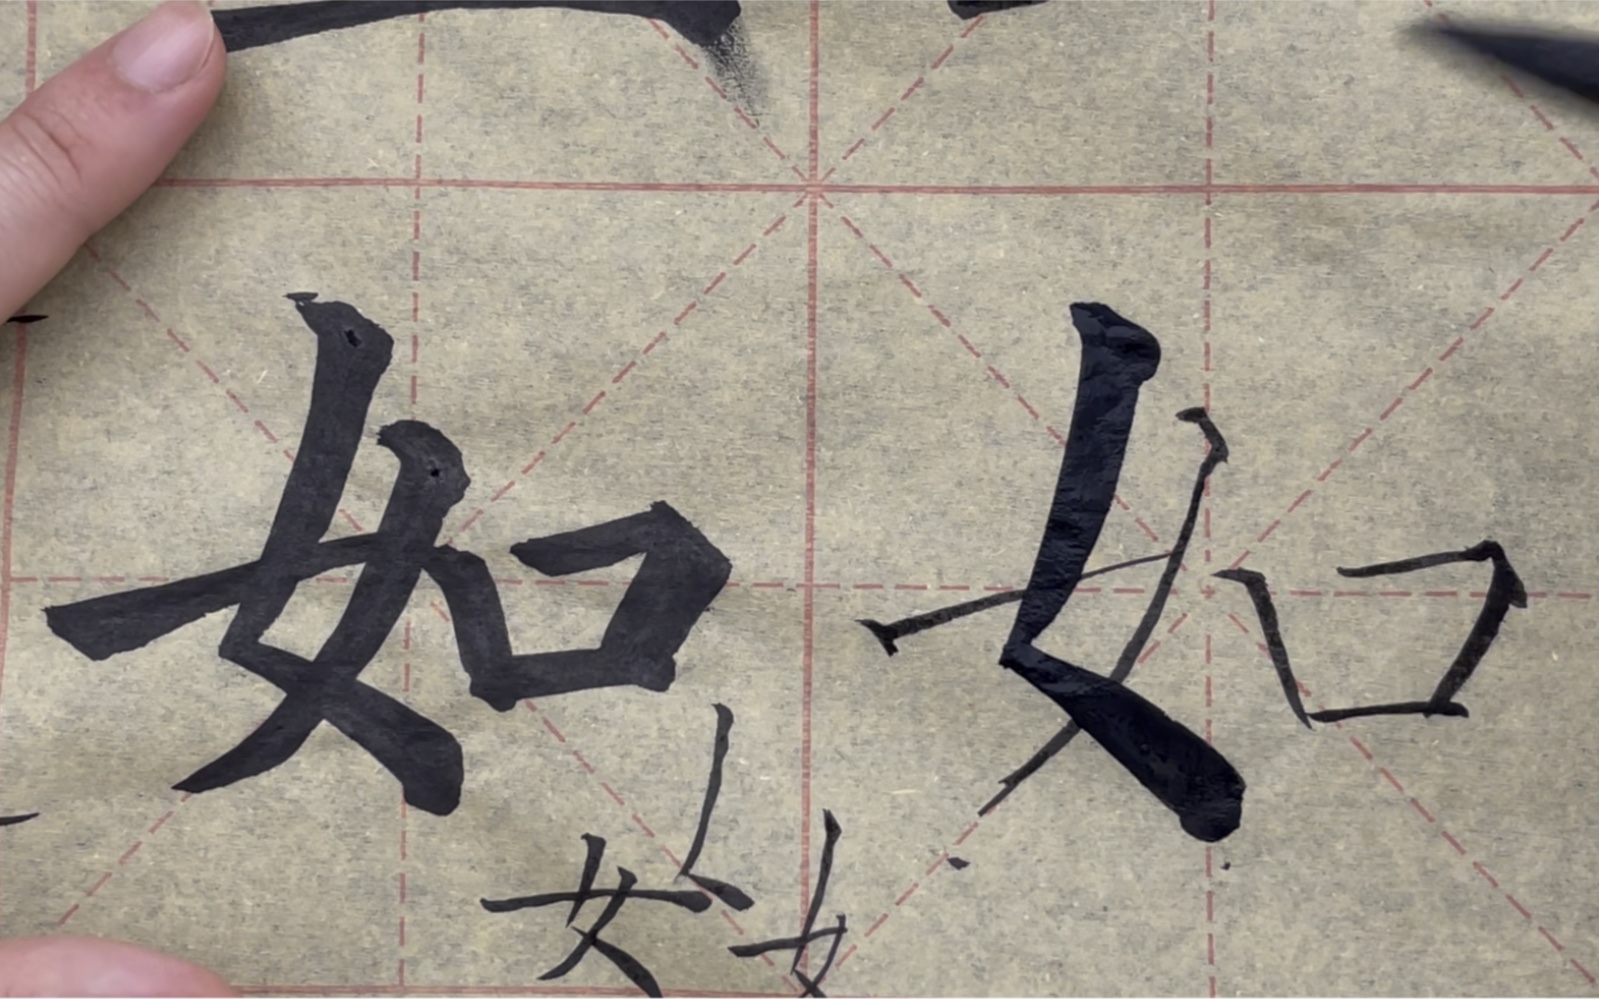 如 如
女 女